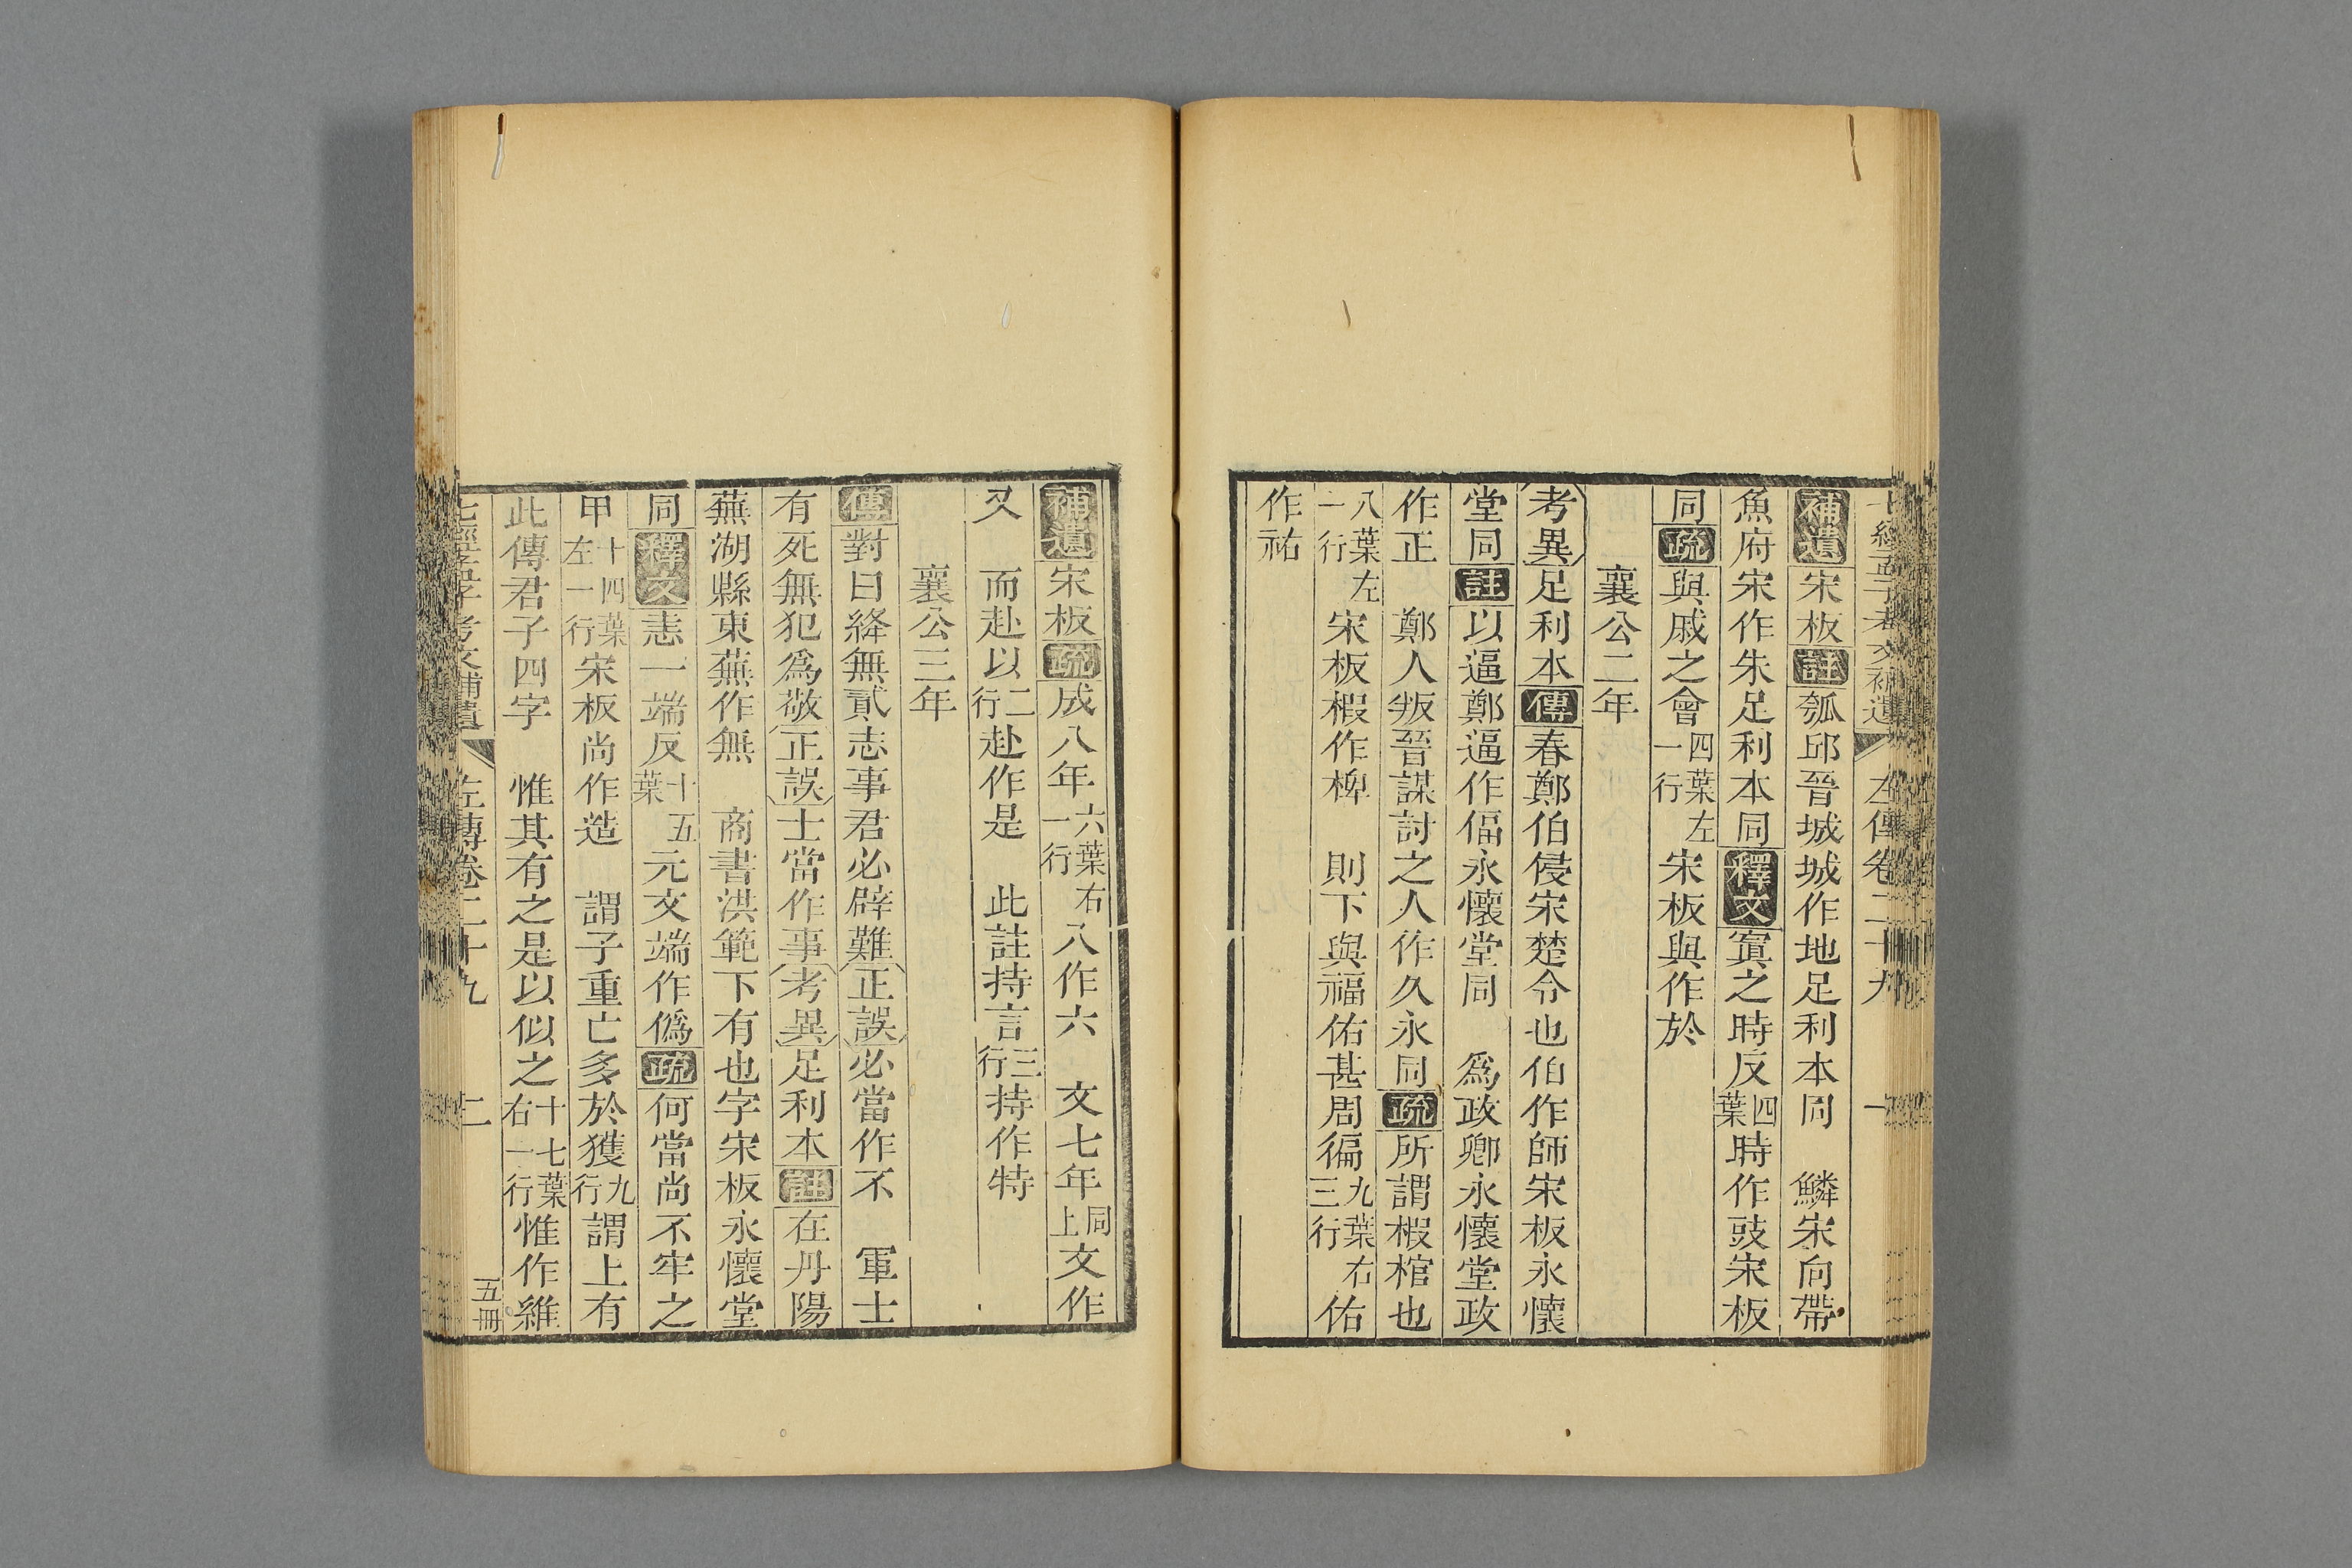 七經孟子考文補遺 左傳卷二十九 一
補遺宋板註瓠邱晉城城作地足利本同 鱗宋向帶
魚府宋作朱足利本同釋文寘之時反四葉時作豉宋板
同疏與戚之會四葉左一行宋板與作於
襄公二年
考異足利本傳春鄭伯侵宋楚令也伯作師宋板永懷
堂同註以逼鄭逼作偪永懷堂同 爲政卿永懷堂政
作正 鄭人叛晉謀討之人作久永同疏所謂椵棺也
八葉左一行宋板椵作椑 則下與福佑甚周徧九葉右三行佑
作祐
補遺宋板疏成八年六葉右一行八作六 文七年同上文作
又 而赴以二行赴作是 此註持言三行持作特
襄公三年
傳對曰絳無貳志事君必辟難正誤必當作不 軍士
有死無犯爲敬正誤士當作事考異足利本註在丹陽
蕪湖縣東蕪作無 商書洪範下有也字宋板永懷堂
同釋文恚一端反十五葉元文端作僞疏何當尚不牢之
甲十四葉左一行宋板尚作造 謂子重亡多於獲九行謂上有
此傳君子四字 惟其有之是以似之十七葉右一行惟作維
七經孟子考文補遺 左傳卷二十九 二 五冊